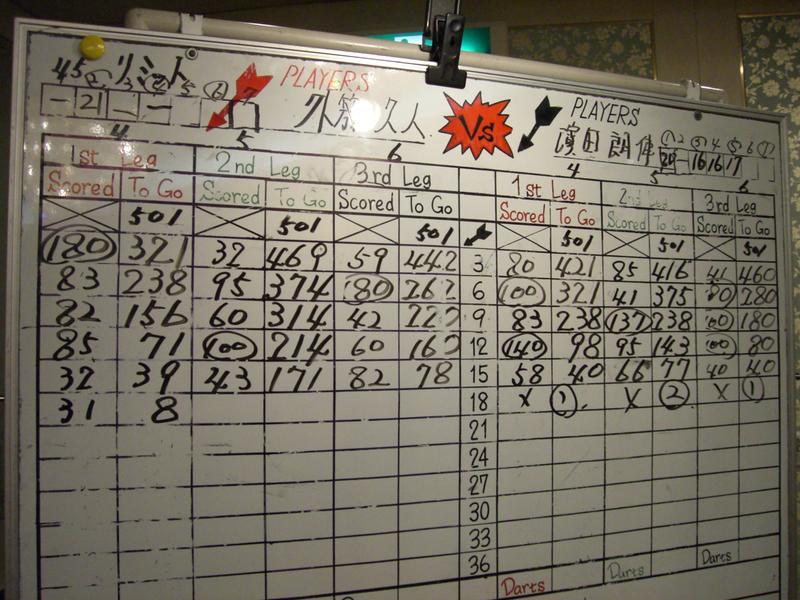 45 リミット
PLAYERS
Vs
PLAYERS
一 21 一 一
久人
濵田 朗
20 16 16 17
4 5 6 4 5 6
1st Leg 2nd Leg 3rd Leg 1st Leg 2nd Leg 3rd Leg
Scored To Go Scored To Go Scored To Go Scored To Go Scored To Go Scored To Go
501 501 501 501 501 501
180 321 32 469 59 442 3 80 421 85 416 41 460
83 238 95 374 180 262 6 100 321 41 375 280
82 156 60 314 42 220 9 83 238 137 238 100 180
85 71 100 214 60 160 12 140 98 95 143 100 80
32 39 43 171 82 78 15 58 40 66 77 40 40
31 8 18 X 1 X 2 X 1
21
24
27
30
33
36
Darts Darts Darts